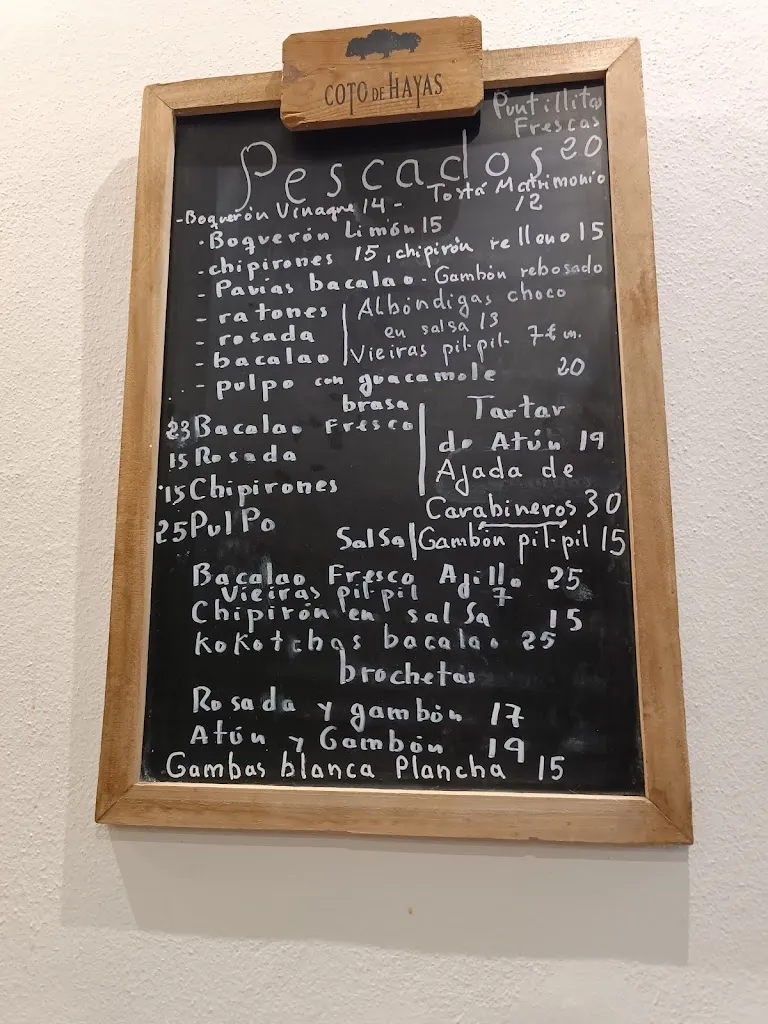 COTO DE HAYAS
Puntillitas
Frescas
20
Pescados
Tosta Matrimonio
12
-Boquerón Vinagre 14 -
· Boquerón Limón 15
- chipirones 15, chipirón relleno 15
- Pavias bacalao - Gambón rebosado
- ratones
- rosada
- bacalao
Albóndigas choco
en salsa 13
Vieiras pil-pil- 7€ un.
- pulpo con guacamole 20
brasa
23 Bacalao Fresco
15 Rosada
15 Chipirones
25 Pulpo
Tartar
de Atún 19
Ajada de
Carabineros 30
Salsa
Gambón pil-pil 15
Bacalao Fresco Ajillo 25
Vieiras pil-pil 7
Chipirón en salsa 15
Kokotchas bacalao 25
brochetas
Rosada y gambón 17
Atún y Gambón 19
Gambas blanca Plancha 15